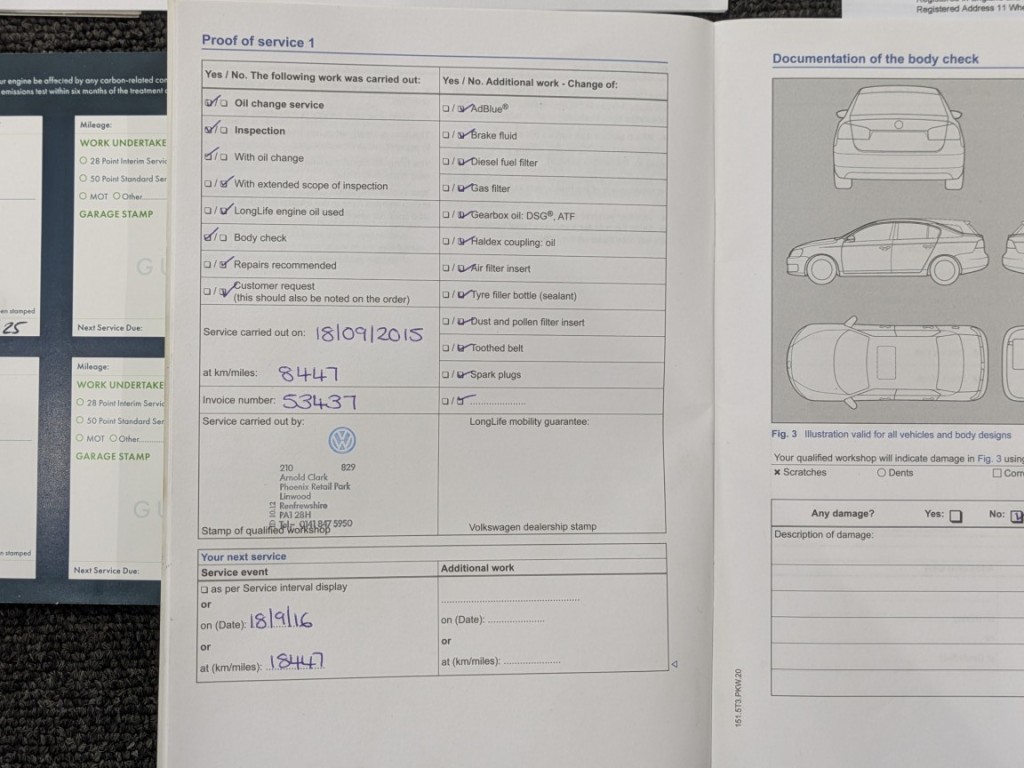 Registered Address 11 Whe
ur engine be affected by any carbon-related con
emissions test within six months of the treatment
Mileage:
WORK UNDERTAKE
28 Point Interim Servic
50 Point Standard Ser
MOT Other
GARAGE STAMP
GU
en stamped
25
Next Service Due:
Mileage:
WORK UNDERTAKE
28 Point Interim Servic
50 Point Standard Ser
MOT Other
GARAGE STAMP
GU
n stamped
Next Service Due:
Proof of service 1
Yes / No. The following work was carried out:
☑/☐ Oil change service
☑/☐ Inspection
☑/☐ With oil change
☐/☑ With extended scope of inspection
☐/☑ LongLife engine oil used
☑/☐ Body check
☐/☑ Repairs recommended
☐/☑ Customer request
(this should also be noted on the order)
Service carried out on: 18/09/2015
at km/miles: 8447
Invoice number: 53437
Service carried out by:
210 829
Arnold Clark
Phoenix Retail Park
Linwood
Renfrewshire
PA1 2BH
Tel:- 0141 847 5950
Stamp of qualified workshop
Yes / No. Additional work - Change of:
☐/☑ AdBlue®
☐/☑ Brake fluid
☐/☑ Diesel fuel filter
☐/☑ Gas filter
☐/☑ Gearbox oil: DSG®, ATF
☐/☑ Haldex coupling: oil
☐/☑ Air filter insert
☐/☑ Tyre filler bottle (sealant)
☐/☑ Dust and pollen filter insert
☐/☑ Toothed belt
☐/☑ Spark plugs
☐/☑ ....................
LongLife mobility guarantee:
Volkswagen dealership stamp
Your next service
Service event
☐ as per Service interval display
or
on (Date): 18/9/16
or
at (km/miles): 18447
Additional work
on (Date): ....................
or
at (km/miles): ....................
Documentation of the body check
Fig. 3 Illustration valid for all vehicles and body designs
Your qualified workshop will indicate damage in Fig. 3 using
× Scratches ○ Dents ☐ Com
Any damage? Yes: ☐ No: ☑
Description of damage:
151.5T3.PKW.20